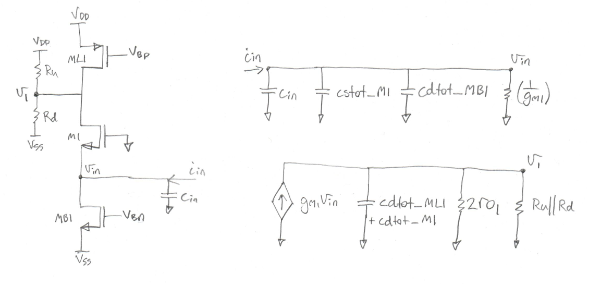 VDD
VDD
ML1
VBP
Ru
V1
Rd
VSS
M1
Vin
iin
Cin
MB1
VBn
VSS
iin
Vin
Cin
cstot_M1
Cdtot_MB1
(1/gm1)
V1
gm1Vin
cdtot_ML1
+ cdtot_M1
2ro1
Ru||Rd